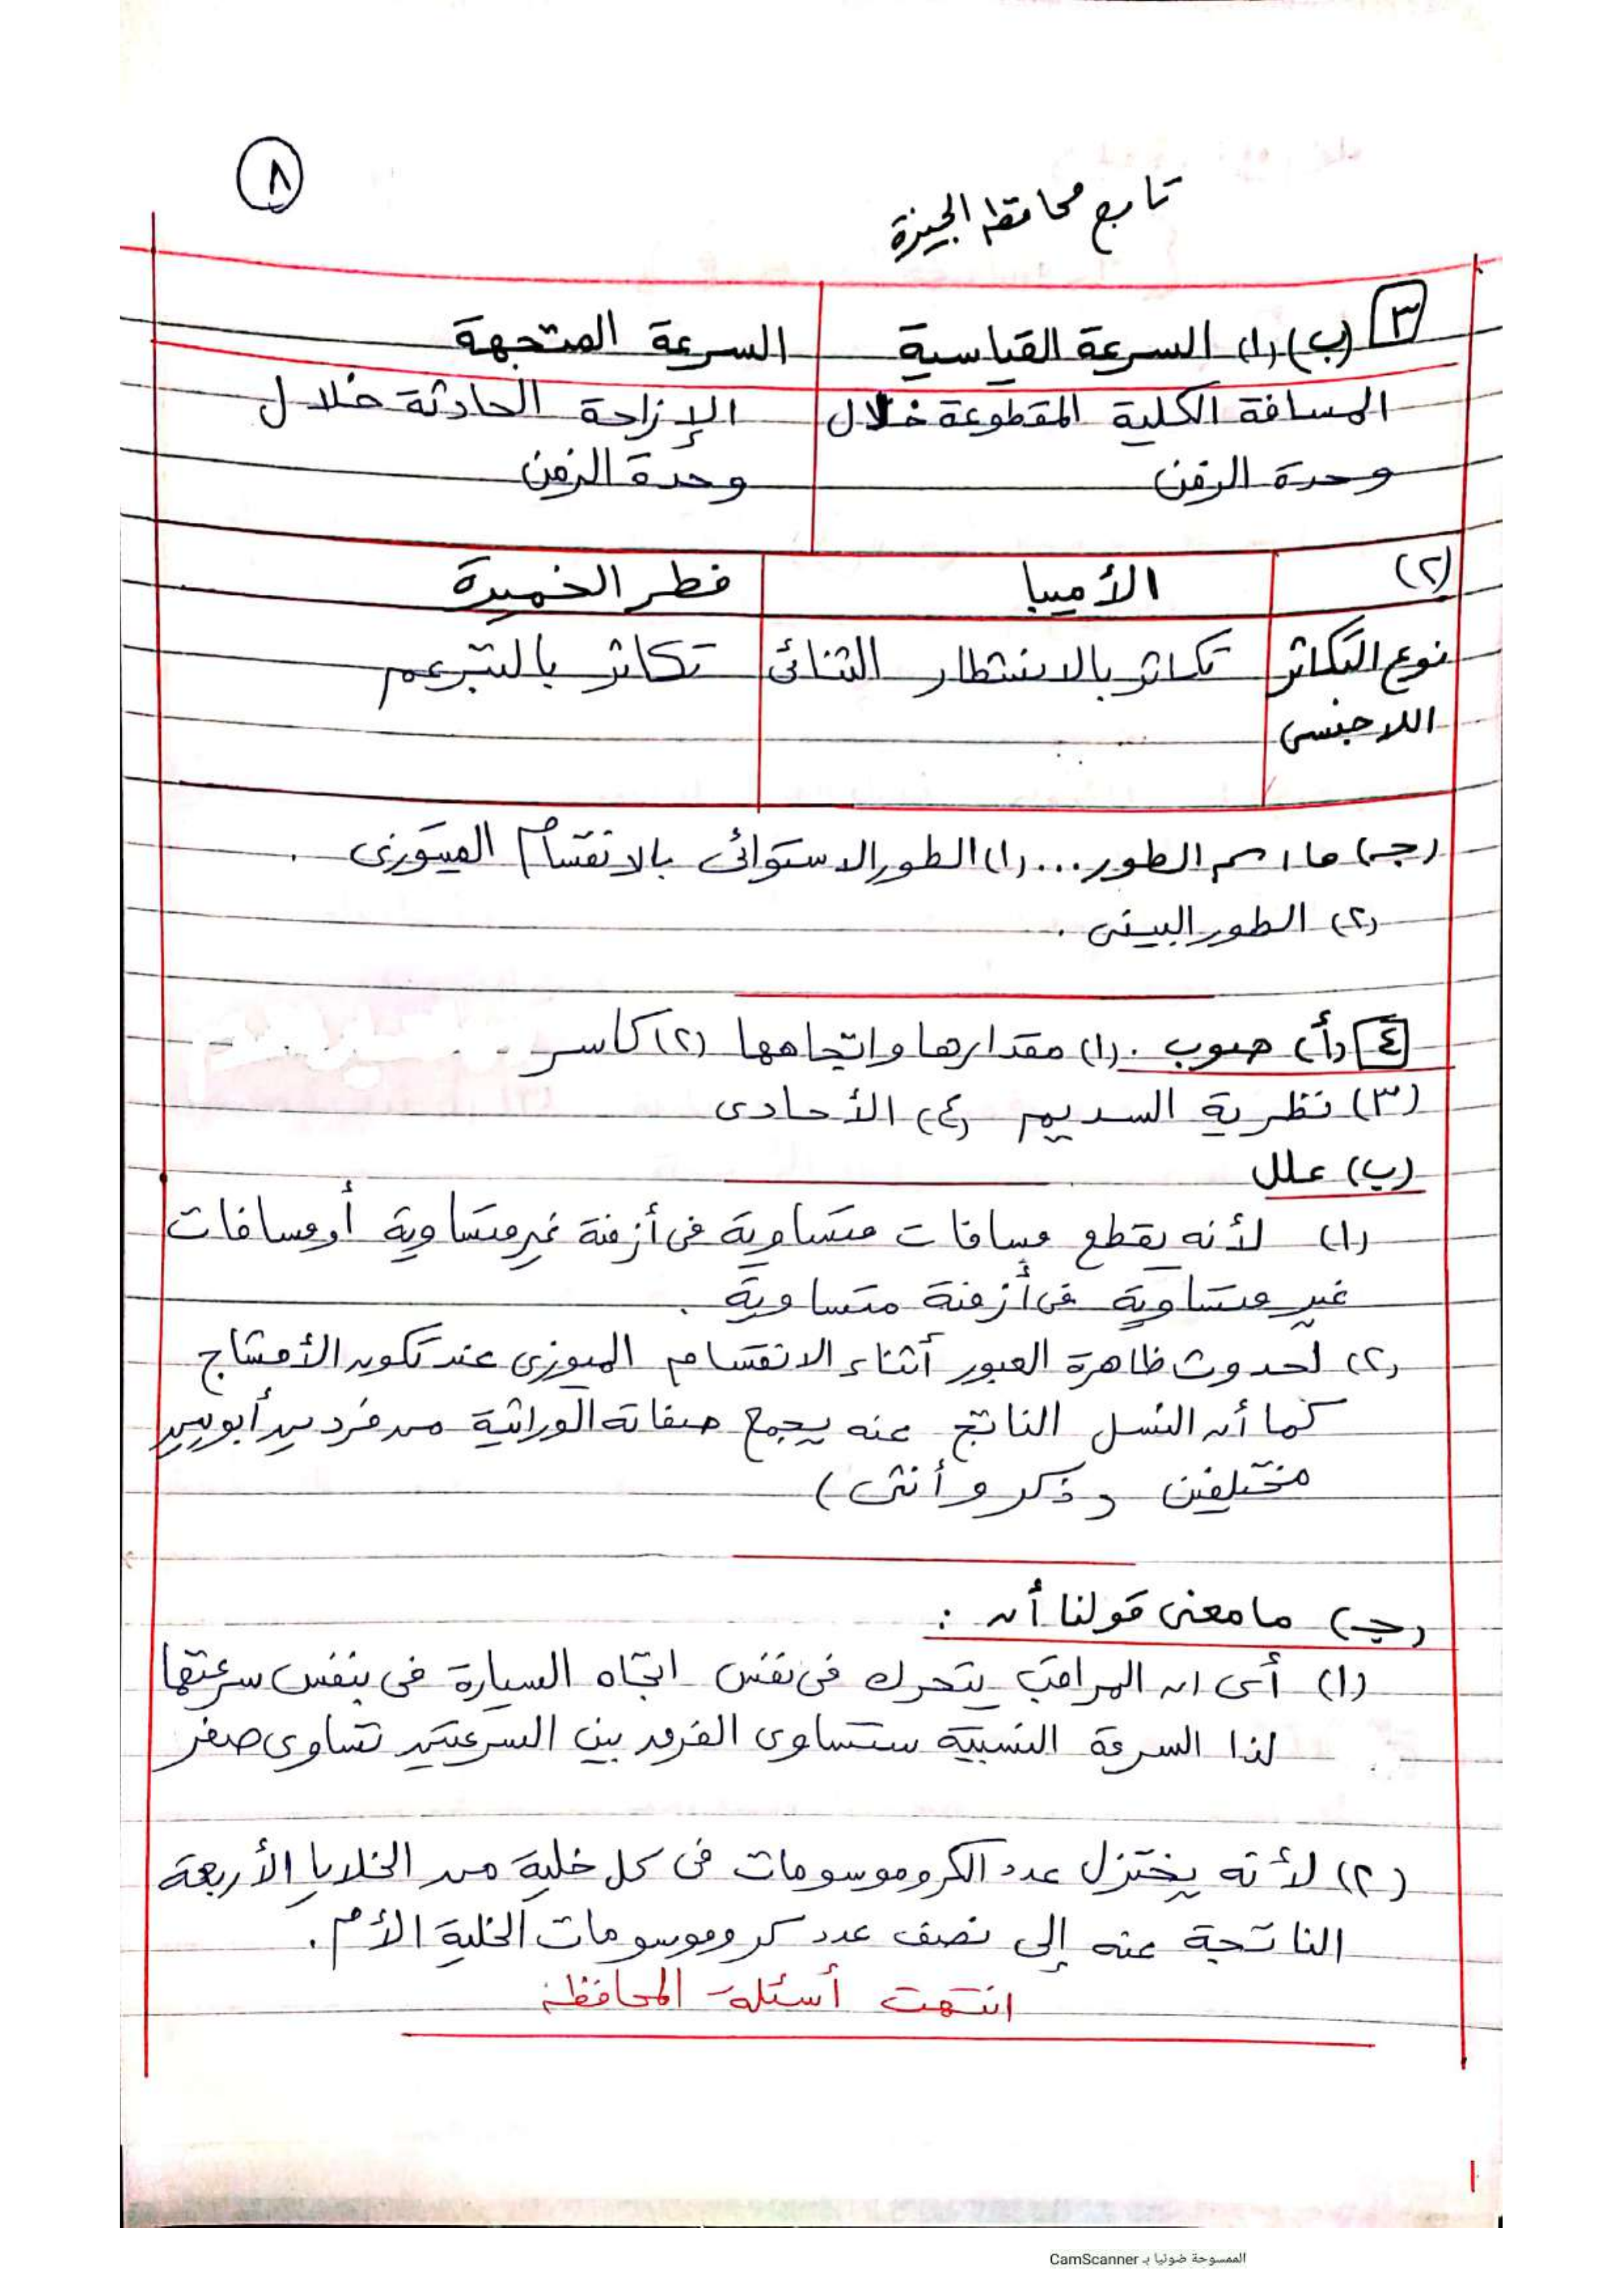 ٨
تابع محافظة الجيزة
٣ (ب) (١) السرعة القياسية | السرعة المتجهة
المسافة الكلية المقطوعة خلال | الإزاحة الحادثة خلال
وحدة الزمن | وحدة الزمن
(٢) | الأميبا | فطر الخميرة
نوع التكاثر | تكاثر بالانشطار الثنائى | تكاثر بالتبرعم
اللاجنسى
(جـ) ما اسم الطور... (١) الطور الاستوائى بالانقسام الميتوزى .
(٢) الطور البينى .
٤ (أ) صوب . (١) مقدارها واتجاهها (٢) كاسر
(٣) نظرية السديم (٤) الأحادى
(ب) علل
(١) لأنه يقطع مسافات متساوية فى أزمنة غير متساوية أو مسافات
غير متساوية فى أزمنة متساوية .
(٢) لحدوث ظاهرة العبور أثناء الانقسام الميوزى عند تكوين الأمشاج
كما أن النسل الناتج عنه يجمع صفاته الوراثية من فردين أبويين
مختلفين (ذكر و أنثى)
(جـ) ما معنى قولنا أن :
(١) أى ان المراقب يتحرك فى نفس اتجاه السيارة فى بنفس سرعتها
لذا السرعة النسبية ستساوى الفرق بين السرعتين تساوى صفر
(٢) لأنه يختزل عدد الكروموسومات فى كل خلية من الخلايا الأربعة
الناتجة عنه إلى نصف عدد كروموسومات الخلية الأم .
انتهت أسئلة المحافظة
الممسوحة ضوئيا بـ CamScanner